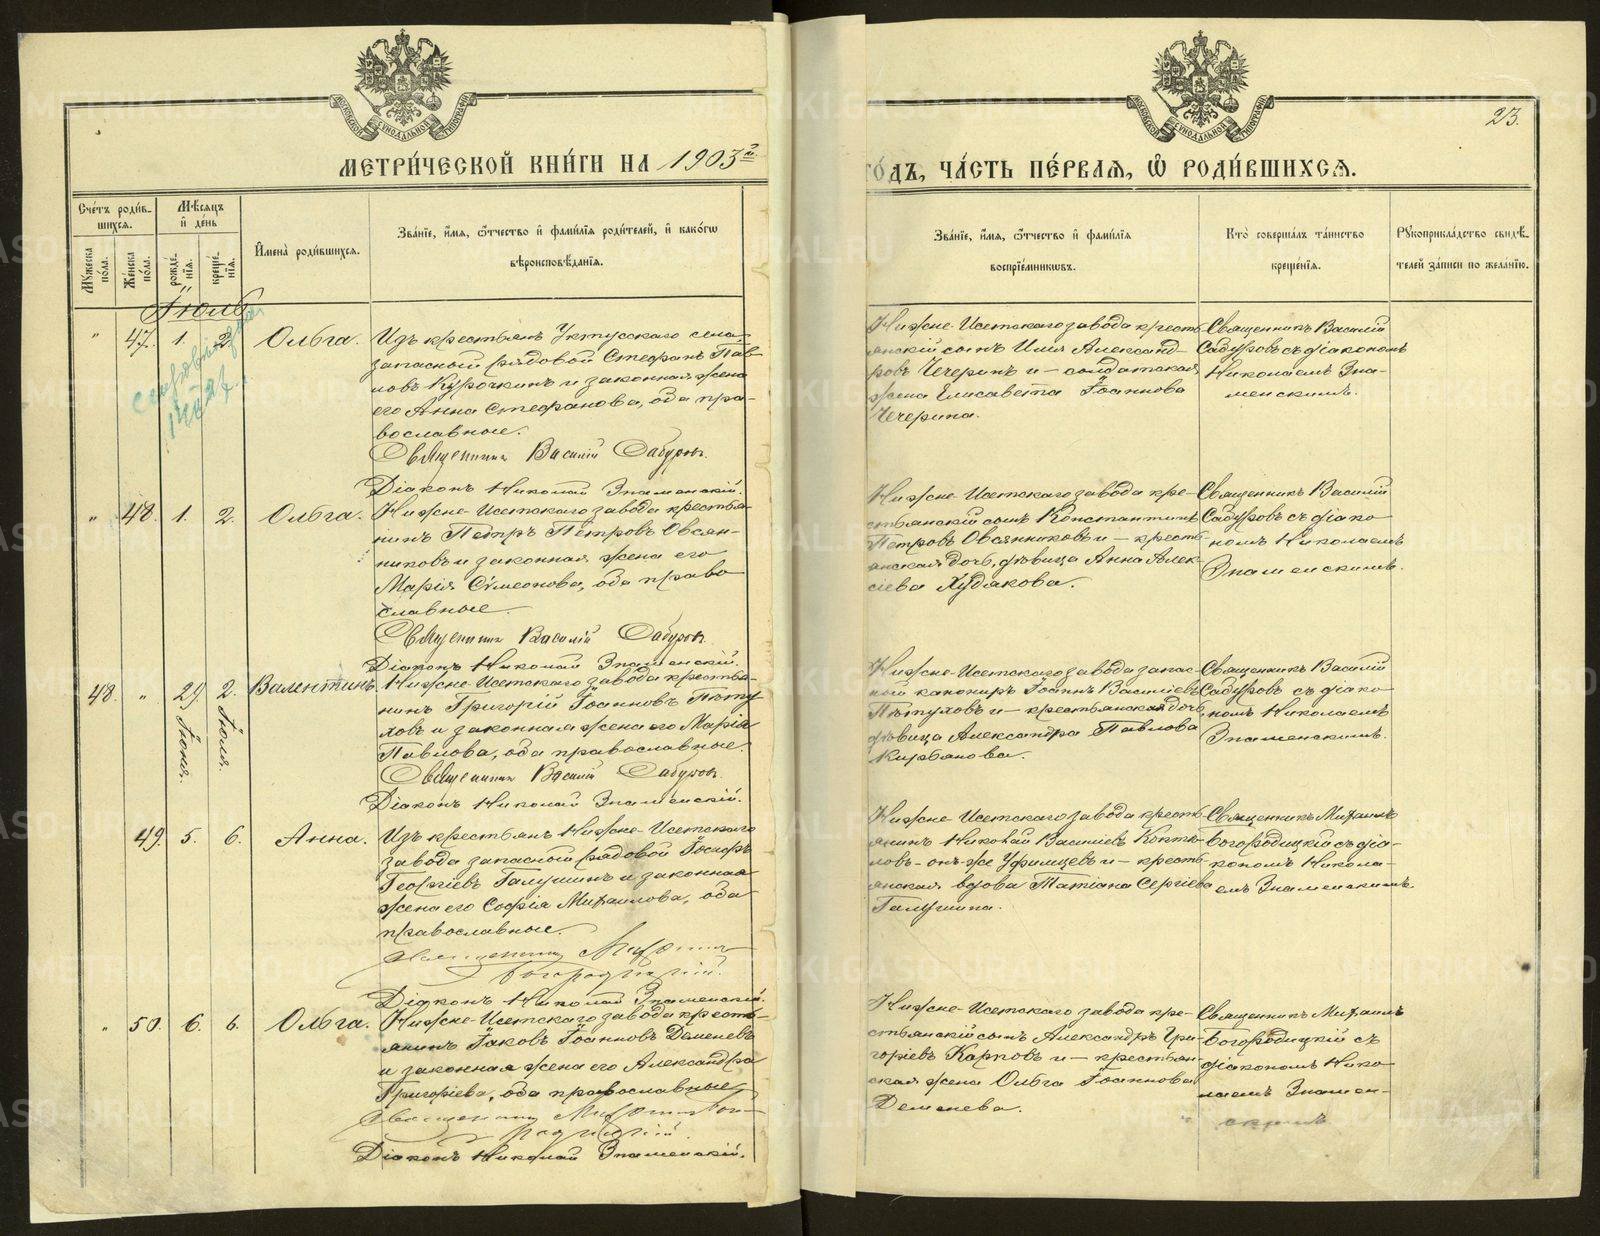 МЕТРИ́ЧЕСКОЙ КНИ́ГИ НА 1903 г.
ГО́ДЪ, ЧА́СТЬ ПЕ́РВАЯ, Ѡ РОДИ́ВШИХСЯ.
23.
МОСКОВСКОЙ СѴНОДАЛЬНОЙ ТИПОГРАФІИ
МОСКОВСКОЙ СѴНОДАЛЬНОЙ ТИПОГРАФІИ
Счётъ роди́в-
шихся.
Мѣсяцъ
и де́нь
Мужеска по́ла.
Же́нска по́ла.
рожде́-
нія.
креще́-
нія.
Имена̀ роди́вшихся.
Зва́ніе, и́мя, ѻ҆́тчество и фами́лія роди́телей, и како́гѡ
вѣроисповѣ́данія.
Зва́ніе, и́мя, ѻ҆́тчество и фами́лія
воспріе́мникѡвъ.
Кто̀ соверша́лъ та́инство
креще́нія.
Рукоприкла́дство свидѣ́-
телей за́писи по жела́нію.
Іюль
" 47. 1. 2. Ольга.
Изъ крестьянъ Уктусскаго села
запасный рядовой Стефанъ Пав-
ловъ Курочкинъ и законная жена
его Анна Стефанова, оба пра-
вославные.
Священникъ Василій Сабуровъ.
Діаконъ Николай Знаменскій.
Нижне-Исетскаго завода кресть-
янскій сынъ Илія Александ-
ровъ Чечеринъ и – солдатская
жена Елисавета Іоаннова
Чечерина.
Священникъ Василій
Сабуровъ съ діакономъ
Николаемъ Зна-
менскимъ.
" 48. 1. 2. Ольга.
Нижне-Исетскаго завода крестья-
нинъ Петръ Петровъ Овсян-
никовъ и законная жена его
Марія Сѵмеонова, оба право
славные.
Священникъ Василій Сабуровъ
Діаконъ Николай Знаменскій.
Нижне-Исетскаго завода кре-
стьянскій сынъ Константинъ
Петровъ Овсянниковъ и – кресть-
янская дочь, дѣвица Анна Алек-
сіева Худякова.
Священникъ Василій
Сабуровъ съ діако
номъ Николаемъ
Знаменскимъ.
48. " 29 Іюня. 2. Іюля. Валентинъ.
Нижне-Исетскаго завода крестья-
нинъ Григорій Іоанновъ Пѣту
ховъ и законная жена его Марія
Павлова, оба православные.
Священникъ Василій Сабуровъ
Діаконъ Николай Знаменскій.
Нижне-Исетскаго завода запас-
ный канониръ Іоаннъ Василіевъ
Пѣтуховъ и – крестьянская дочь,
дѣвица Александра Павлова
Курбанова.
Священникъ Василій
Сабуровъ съ діако
номъ Николаемъ
Знаменскимъ.
49. 5. 6. Анна.
Изъ крестьянъ Нижне-Исетскаго
завода запасный рядовой Іосифъ
Георгіевъ Галушинъ и законная
жена его Софія Михаилова, оба
православные.
Священникъ Михаилъ
Богородицкій.
Діаконъ Николай Знаменскій.
Нижне-Исетскаго завода кресть-
янинъ Николай Василіевъ
ловъ – онъ-же Уфимцевъ и – кресть-
янская вдова Татіана Сергіева
Галушина.
Священникъ Михаилъ
Богородицкій съ діа-
кономъ Никола-
емъ Знаменскимъ.
" 50. 6. 6. Ольга.
Нижне-Исетскаго завода кресть-
янинъ Іаковъ Іоанновъ Деменевъ
и законная жена его Александра
Григоріева, оба православные.
Священникъ Михаилъ Бого-
родицкій.
Діаконъ Николай Знаменскій.
Нижне-Исетскаго завода кре-
стьянскій сынъ Александръ Гри-
горіевъ Карповъ и – крестьян-
ская жена Ольга Іоаннова
Деменева.
Священникъ Михаилъ
Богородицкій съ
діакономъ Нико
лаемъ Знамен-
скимъ